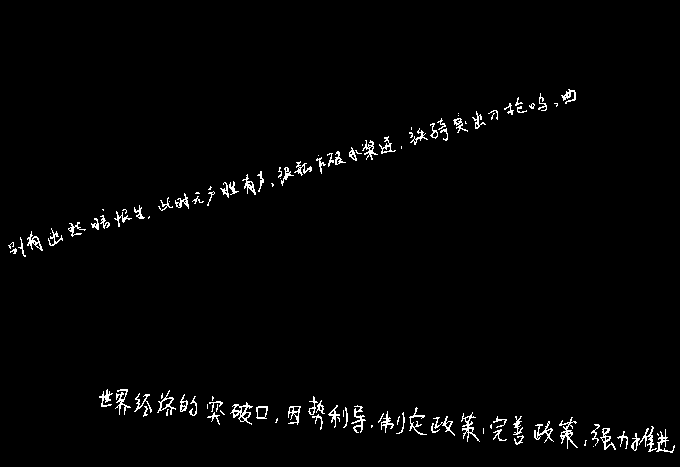 别有幽愁暗恨生，此时无声胜有声。银瓶乍破水浆迸，铁骑突出刀枪鸣。曲
世界经济的突破口，因势利导，制定政策，完善政策，强力推进